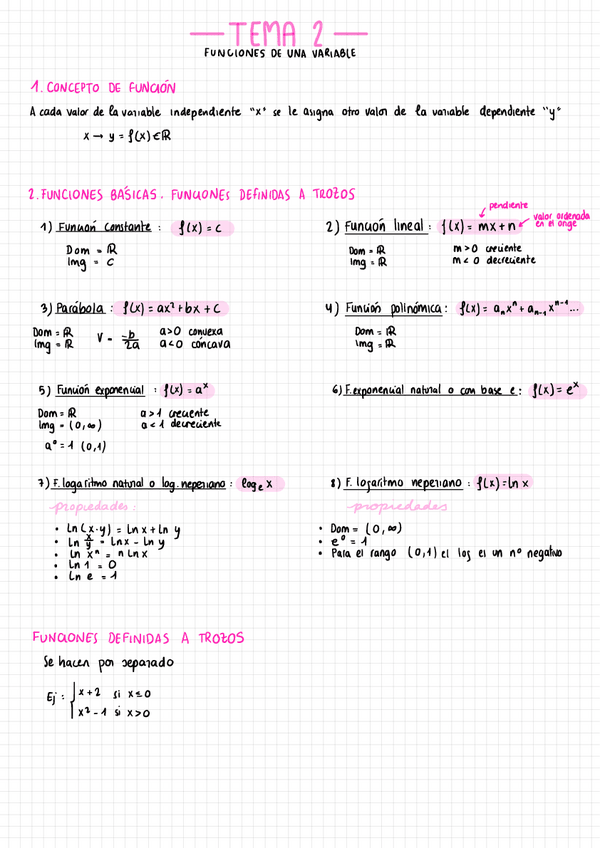 TEMA 2
FUNCIONES DE UNA VARIABLE
1. CONCEPTO DE FUNCIÓN
A cada valor de la variable independiente "x" se le asigna otro valor de la variable dependiente "y"
x → y = f(x) ∈ ℝ
2. FUNCIONES BÁSICAS. FUNCIONES DEFINIDAS A TROZOS
1) Función constante : f(x) = c
Dom = ℝ
Img = C
2) Función lineal : f(x) = mx + n
pendiente
valor ordenada
en el origen
Dom = ℝ
Img = ℝ
m > 0 creciente
m < 0 decreciente
3) Parábola : f(x) = ax² + bx + C
Dom = ℝ
Img = ℝ
V = -b/2a
a>0 convexa
a<0 cóncava
4) Función polinómica : f(x) = aₙxⁿ + aₙ₋₁xⁿ⁻¹...
Dom = ℝ
Img = ℝ
5) Función exponencial : f(x) = aˣ
Dom = ℝ
Img = (0, ∞)
a > 1 creciente
a < 1 decreciente
a⁰ = 1 (0,1)
6) F. exponencial natural o con base e : f(x) = eˣ
7) F. logaritmo natural o log. neperiano : logₑ x
propiedades :
• Ln (x·y) = Ln x + Ln y
• Ln x/y = Ln x - Ln y
• Ln xⁿ = n Ln x
• Ln 1 = 0
• Ln e = 1
8) F. logaritmo neperiano : f(x) = ln x
propiedades
• Dom = (0, ∞)
• e⁰ = 1
• Para el rango (0,1) el log es un nº negativo
FUNCIONES DEFINIDAS A TROZOS
Se hacen por separado
Ej : { x + 2 si x ≤ 0
x² - 1 si x > 0